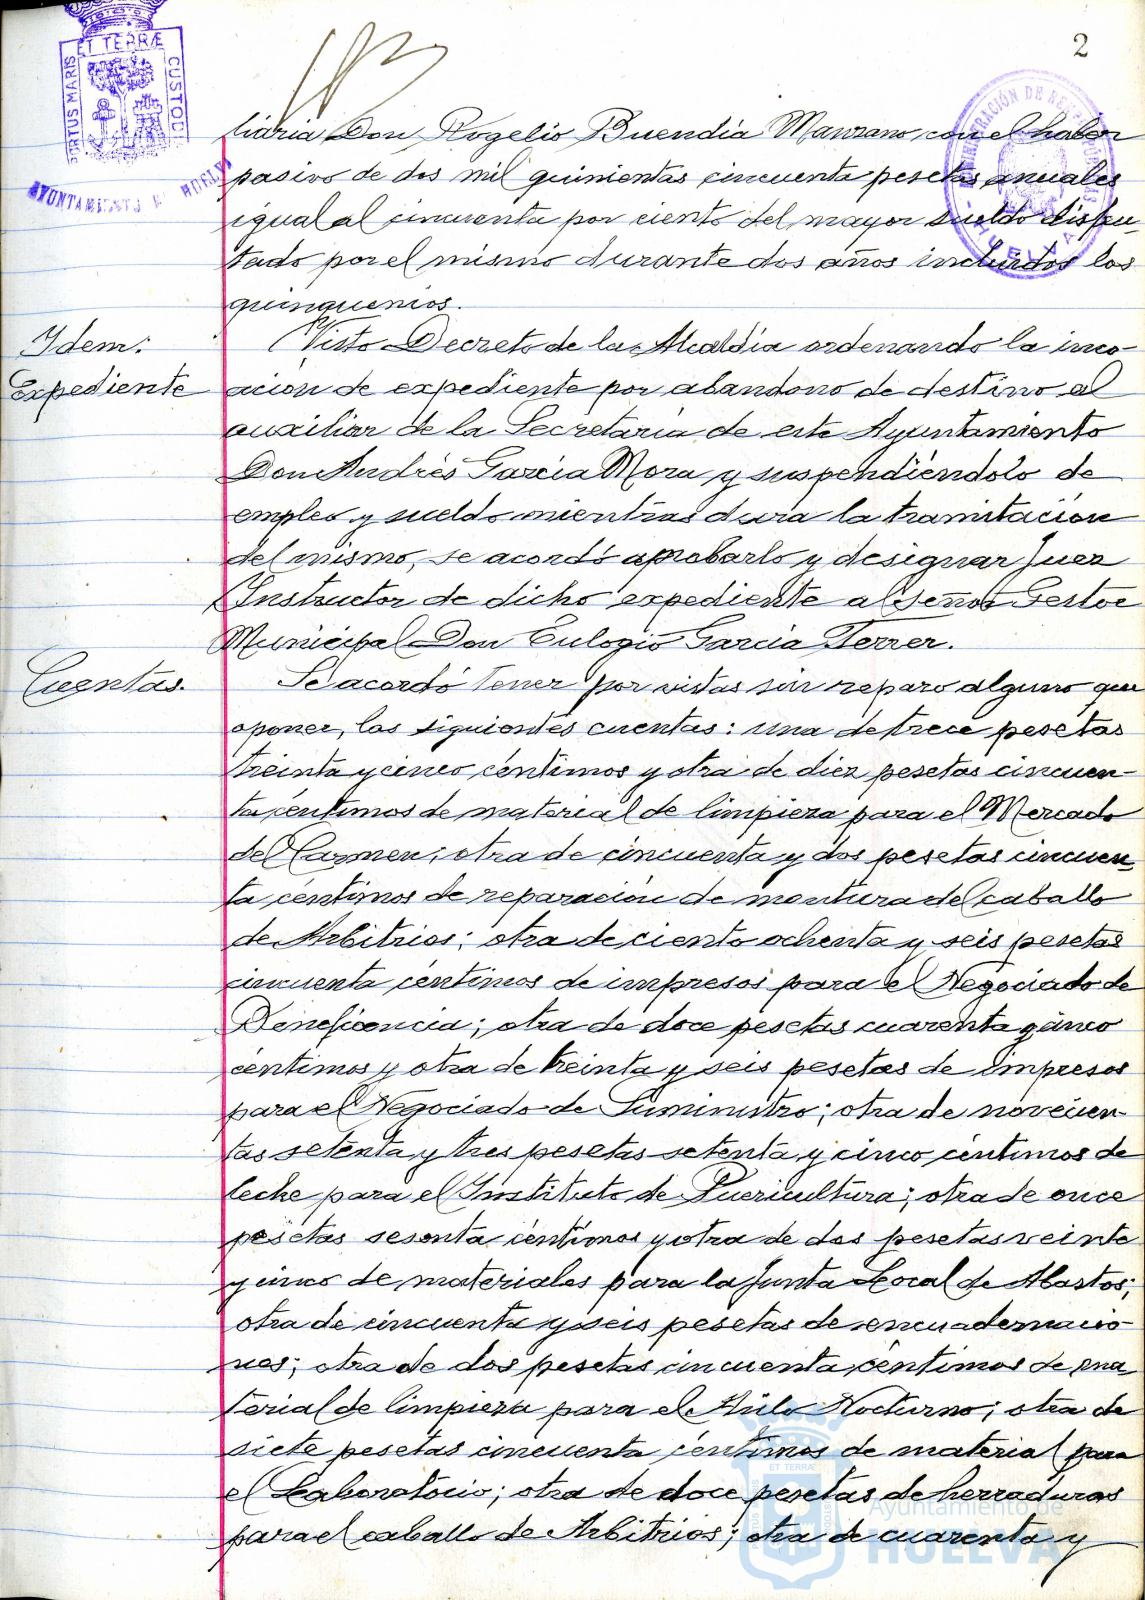 2
PORTUS MARIS ET TERRÆ CUSTODI
AYUNTAMIENTO DE HUELVA
ADMINISTRACIÓN DE
HUELVA
liaria Don Rogelio Buendía Manzano, con el haber
pasivo de dos mil quinientas cincuenta pesetas anuales
igual al cincuenta por ciento del mayor sueldo disfru-
tado por el mismo durante dos años incluidos los
quinquenios.
Idem:
Expediente
Visto Decreto de la Alcaldía ordenando la inco-
ación de expediente por abandono de destino al
auxiliar de la Secretaría de este Ayuntamiento
Don Andrés García Mora y suspendiéndolo de
empleo y sueldo mientras dura la tramitación
del mismo, se acordó aprobarlo y designar Juez
Instructor de dicho expediente al Señor Gestor
Municipal Don Eulogio García Ferrer.
Cuentas.
Se acordó tener por vistas sin reparo alguno que
oponer, las siguientes cuentas: una de trece pesetas
treinta y cinco céntimos y otra de diez pesetas cincuen-
ta céntimos de material de limpieza para el Mercado
del Carmen; otra de cincuenta y dos pesetas cincuen-
ta céntimos de reparación de montura del caballo
de Arbitrios; otra de ciento ochenta y seis pesetas
cincuenta céntimos de impresos para el Negociado de
Beneficencia; otra de doce pesetas cuarenta y cinco
céntimos y otra de treinta y seis pesetas de impresos
para el Negociado de Suministro; otra de novecien-
tas setenta y tres pesetas setenta y cinco céntimos de
leche para el Instituto de Puericultura; otra de once
pesetas sesenta céntimos y otra de dos pesetas veinte
y cinco de materiales para la Junta Local de Abastos;
otra de cincuenta y seis pesetas de encuadernacio-
nes; otra de dos pesetas cincuenta céntimos de ma
terial de limpieza para el Asilo Nocturno; otra de
siete pesetas cincuenta céntimos de material para
el Laboratorio; otra de doce pesetas de herraduras
para el caballo de Arbitrios; otra de cuarenta y
Ayuntamiento de
HUELVA